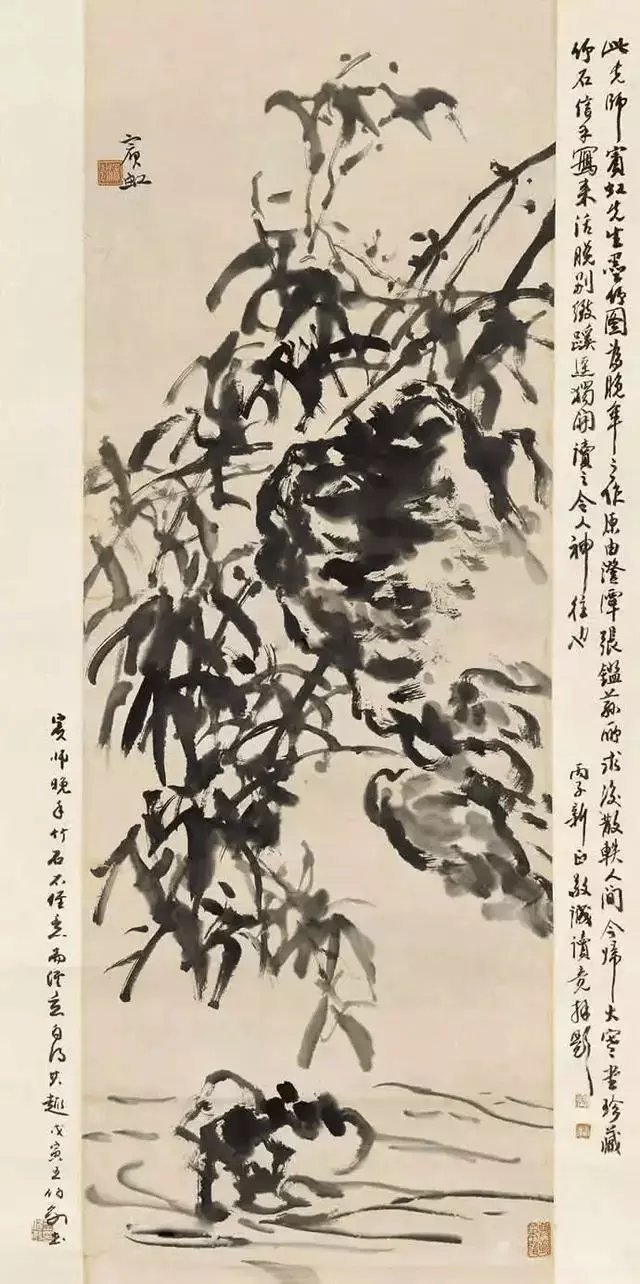 此先師賓虹先生墨竹圖為晚年之作原由澄潭張鎰蓀所求後散軼人間今歸大寒堂珍藏
竹石信手寫来活脫别緻蹊逕獨開讀之令人神往也
丙子新正敬誠讀竟拜題
賓虹
賓師晚年竹石不經意而經意自得其趣戊寅王伯敏書